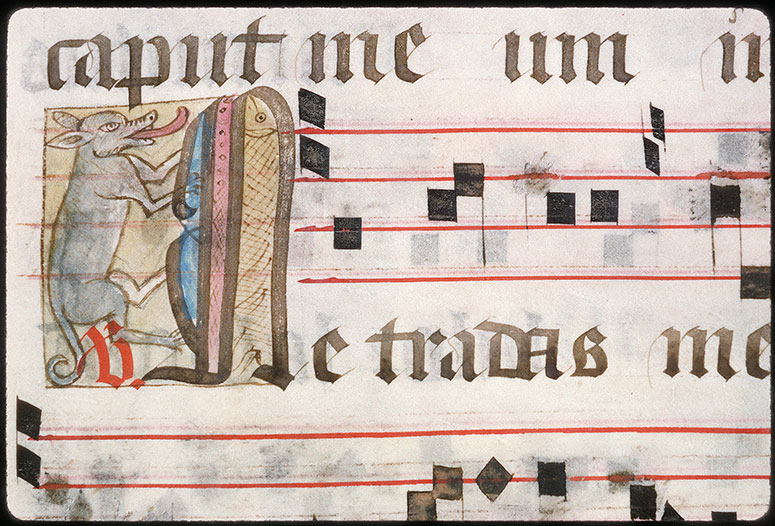 caput me um in
℣. Ne tradas me